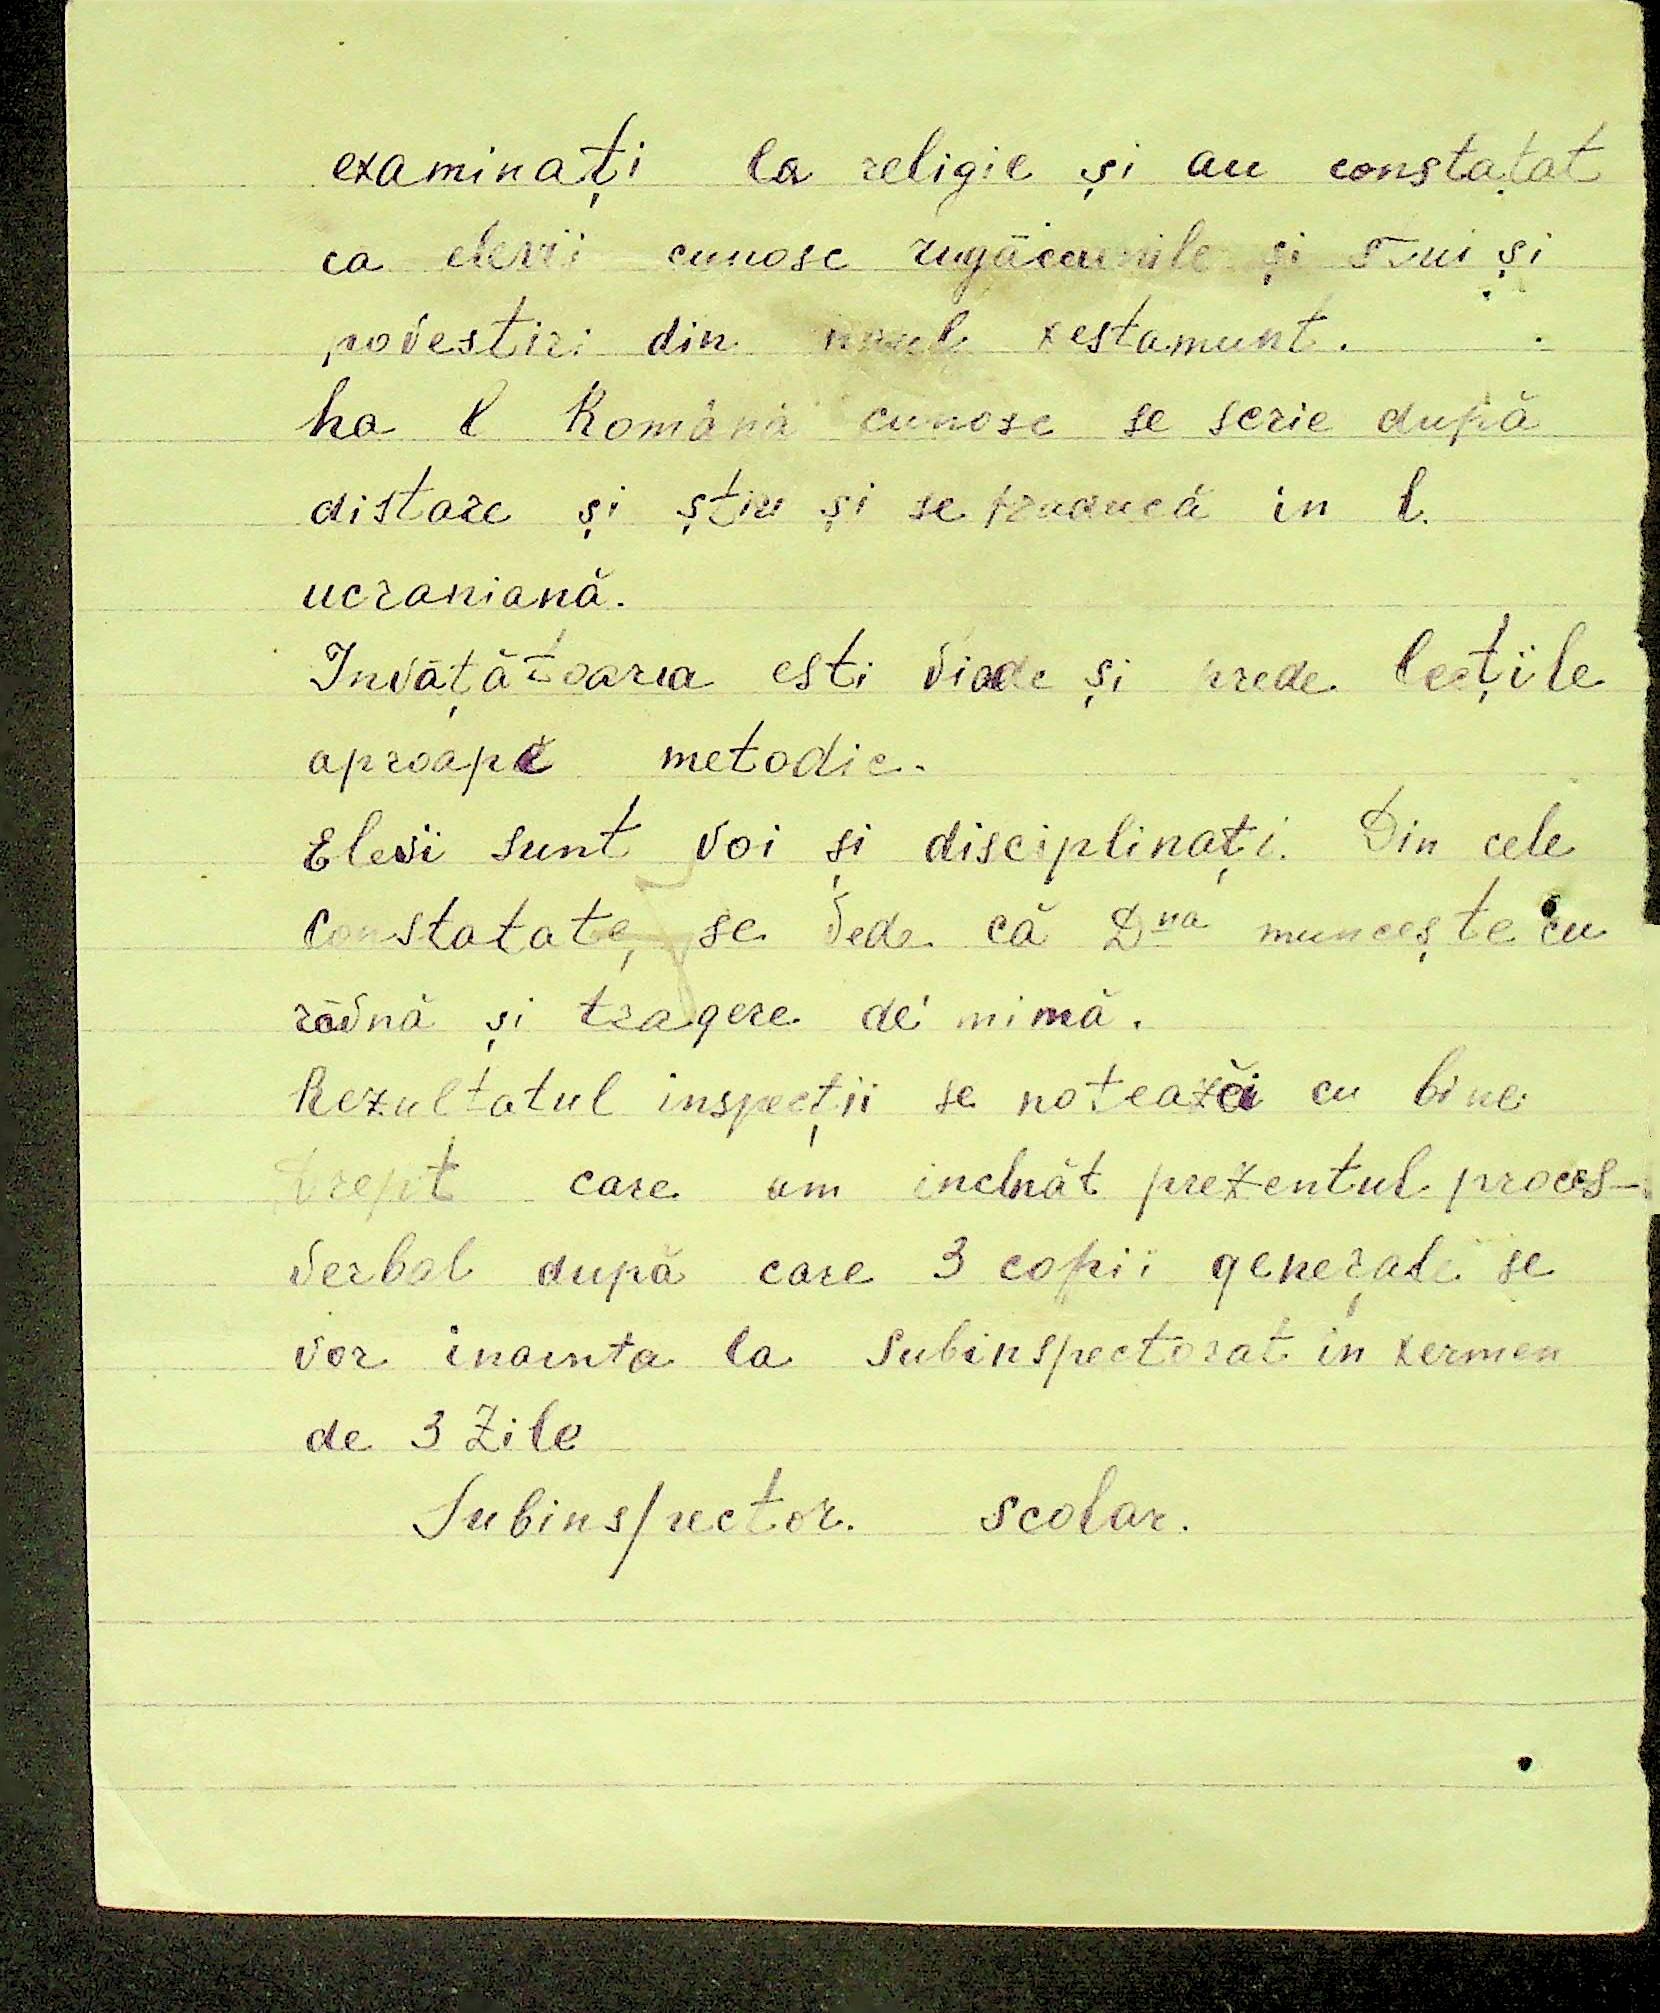 examinați la religie și au constatat
ca elevii cunosc rugăciunile și și
povestiri din testamunt.
ha l Română cunosc se scrie după
distare și știu și se traducă in l.
ucraniană.
Invățătoarea esti viode și prede lecțiile
aproape metodic.
Elevii sunt voi și disciplinați. Din cele
constatate, se vede că Dna muncește cu
râvnă și tragere de inimă.
Rezultatul inspecții se notează cu bine
Drept care am incheăt prezentul proces-
verbal după care 3 copii generale se
vor inainta la Subinspectorat in termen
de 3 Zile
Subinspector. scolar.